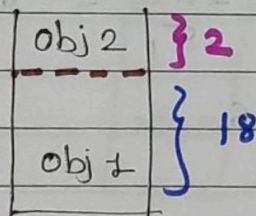 obj 2 } 2
obj 1 } 18